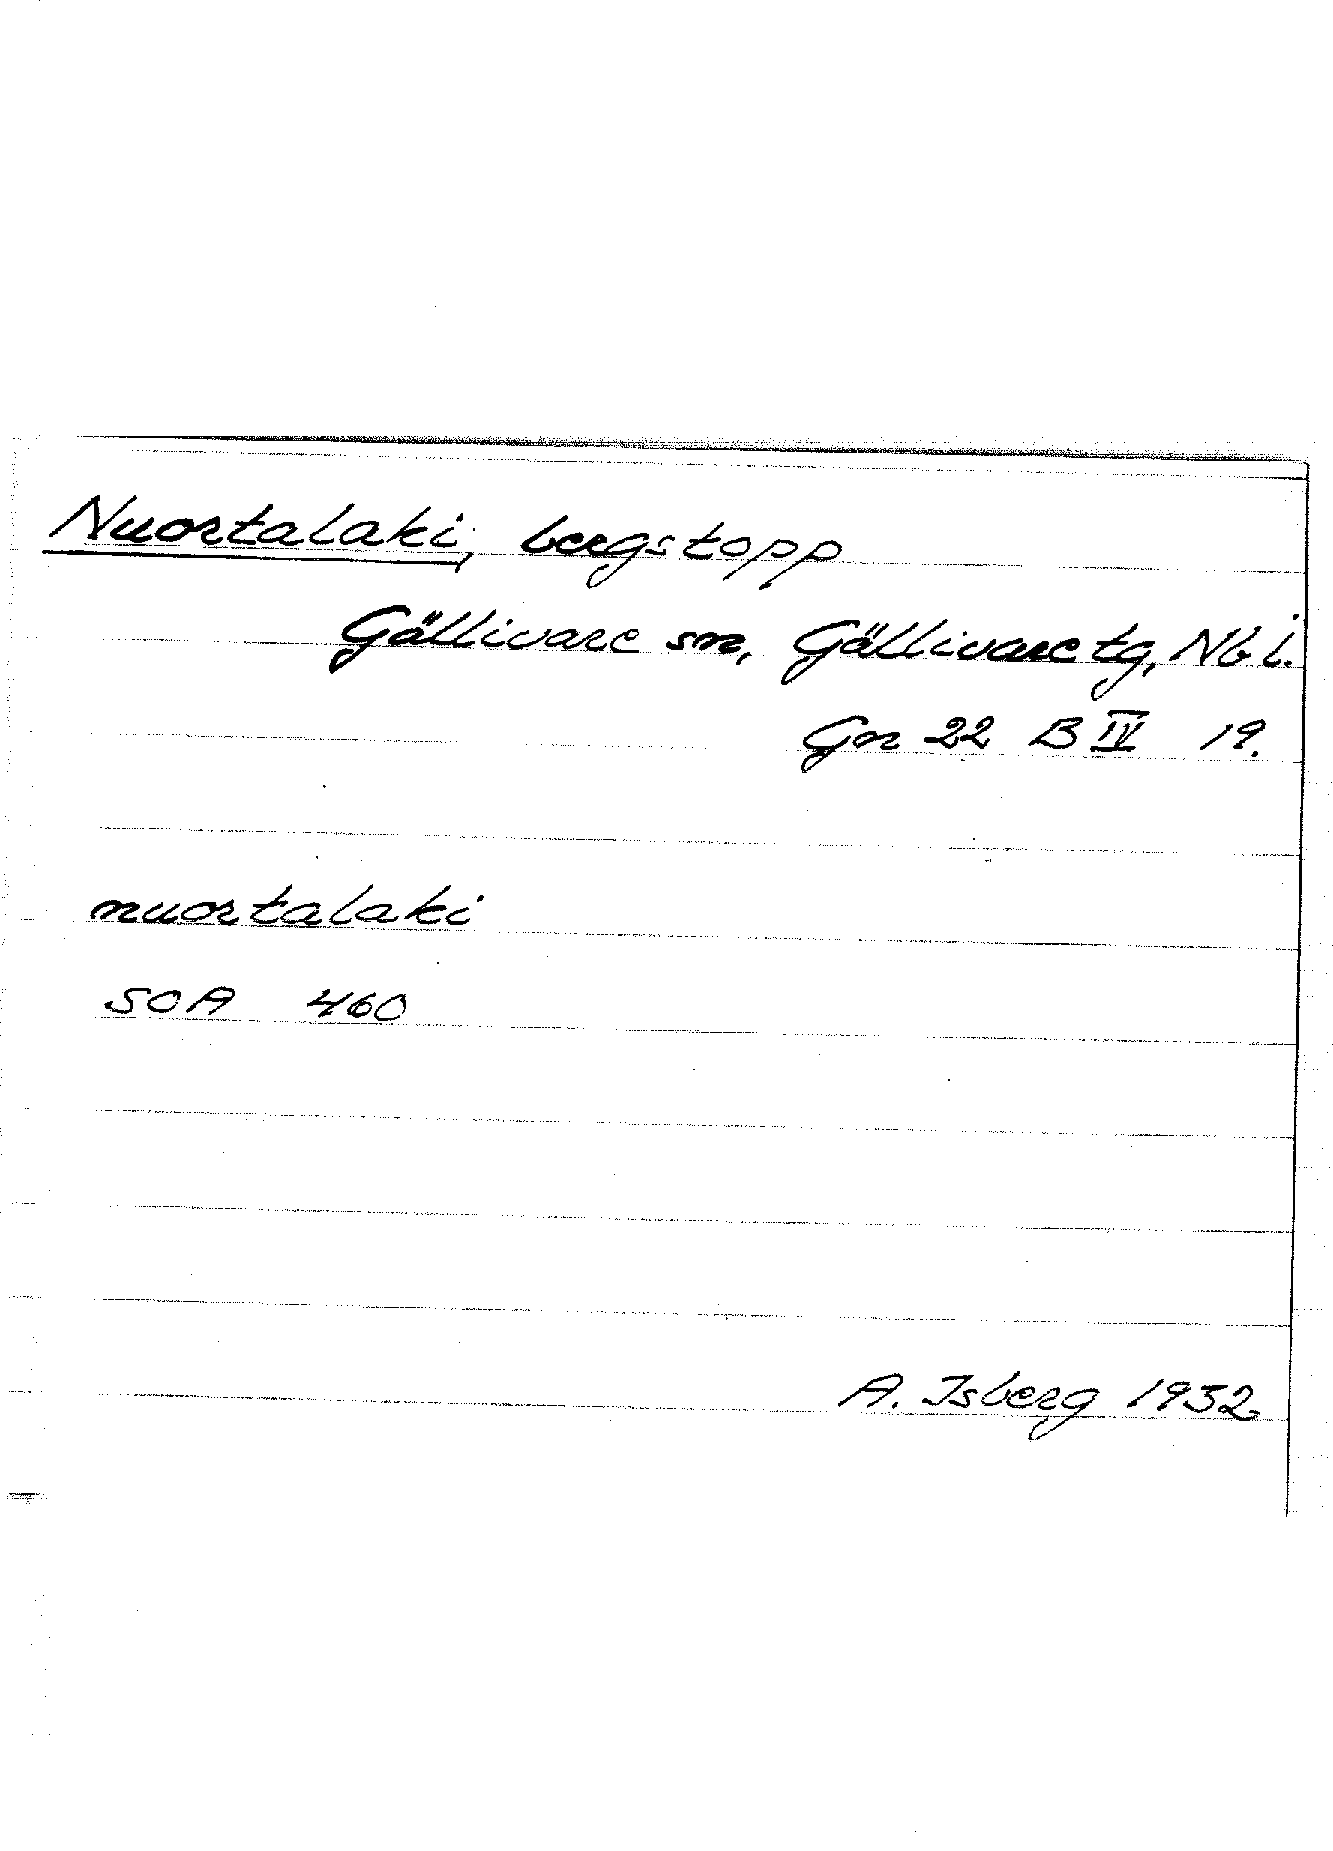 Nuortalaki, bergstopp
Gällivare sn, Gällivare tg, Nb l.
Gn 22 B IV 19.
nuortalaki
SOA 460
A. Isberg 1932